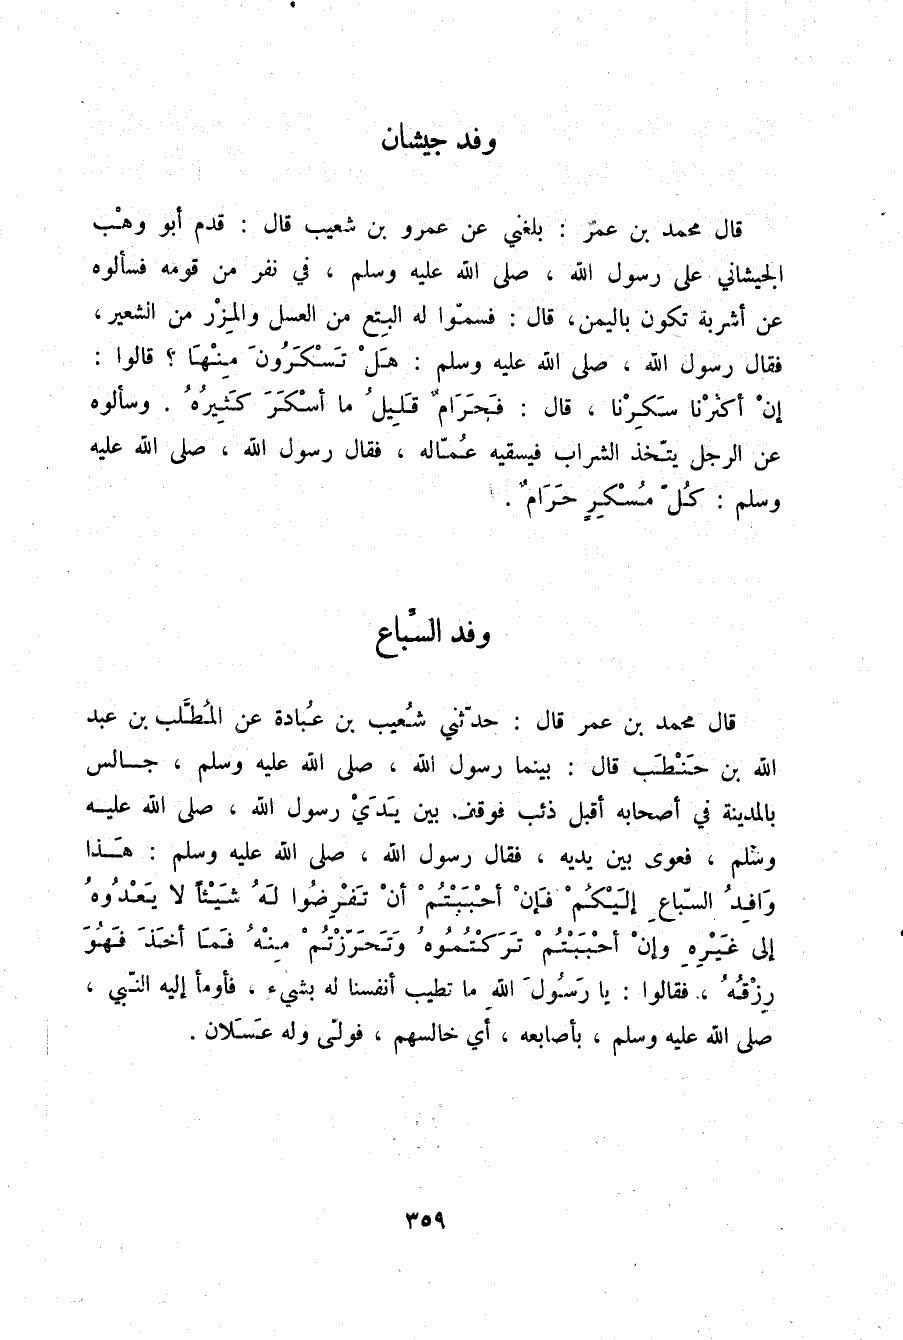 وفد جيشان
قال محمد بن عمر : بلغني عن عمرو بن شعيب قال : قدم أبو وهْب
الجيشاني على رسول الله ، صلى الله عليه وسلم ، في نفر من قومه فسألوه
عن أشربة تكون باليمن، قال : فسمّوا له البِتع من العسل والمِزْر من الشعير،
فقال رسول الله ، صلى الله عليه وسلم : هَلْ تَسْكَرُونَ مِنْهَا ؟ قالوا :
إنْ أكثرْنا سَكِرْنا ، قال : فَحَرَامٌ قَلِيلُ ما أسْكَرَ كَثِيرُهُ . وسألوه
عن الرجل يتّخذ الشراب فيسقيه عُمّاله ، فقال رسول الله ، صلى الله عليه
وسلم : كُلّ مُسْكِرٍ حَرَامٌ .
وفد السّباع
قال محمد بن عمر قال : حدّثني شُعيب بن عُبادة عن المُطَّلب بن عبد
الله بن حَنْطَب قال : بينما رسول الله ، صلى الله عليه وسلم ، جالس
بالمدينة في أصحابه أقبل ذئب فوقف بين يَدَيْ رسول الله ، صلى الله عليه
وسلم ، فعوى بين يديه ، فقال رسول الله ، صلى الله عليه وسلم : هَذا
وَافِدُ السّباعِ إلَيْكُمْ فَإنْ أحْبَبْتُمْ أنْ تَفْرِضُوا لَهُ شَيْئاً لا يَعْدُوهُ
إلى غَيْرِهِ وإنْ أحْبَبْتُمْ تَرَكْتُمُوهُ وَتَحَرّزْتُمْ مِنْهُ فَمَا أخَذَ فَهُوَ
رِزْقُهُ ، فقالوا : يا رَسُولَ اللهِ ما تطيب أنفسنا له بشيء ، فأومأ إليه النّبي ،
صلى الله عليه وسلم ، بأصابعه ، أي خالسهم ، فولّى وله عَسَلان .
٣٥٩